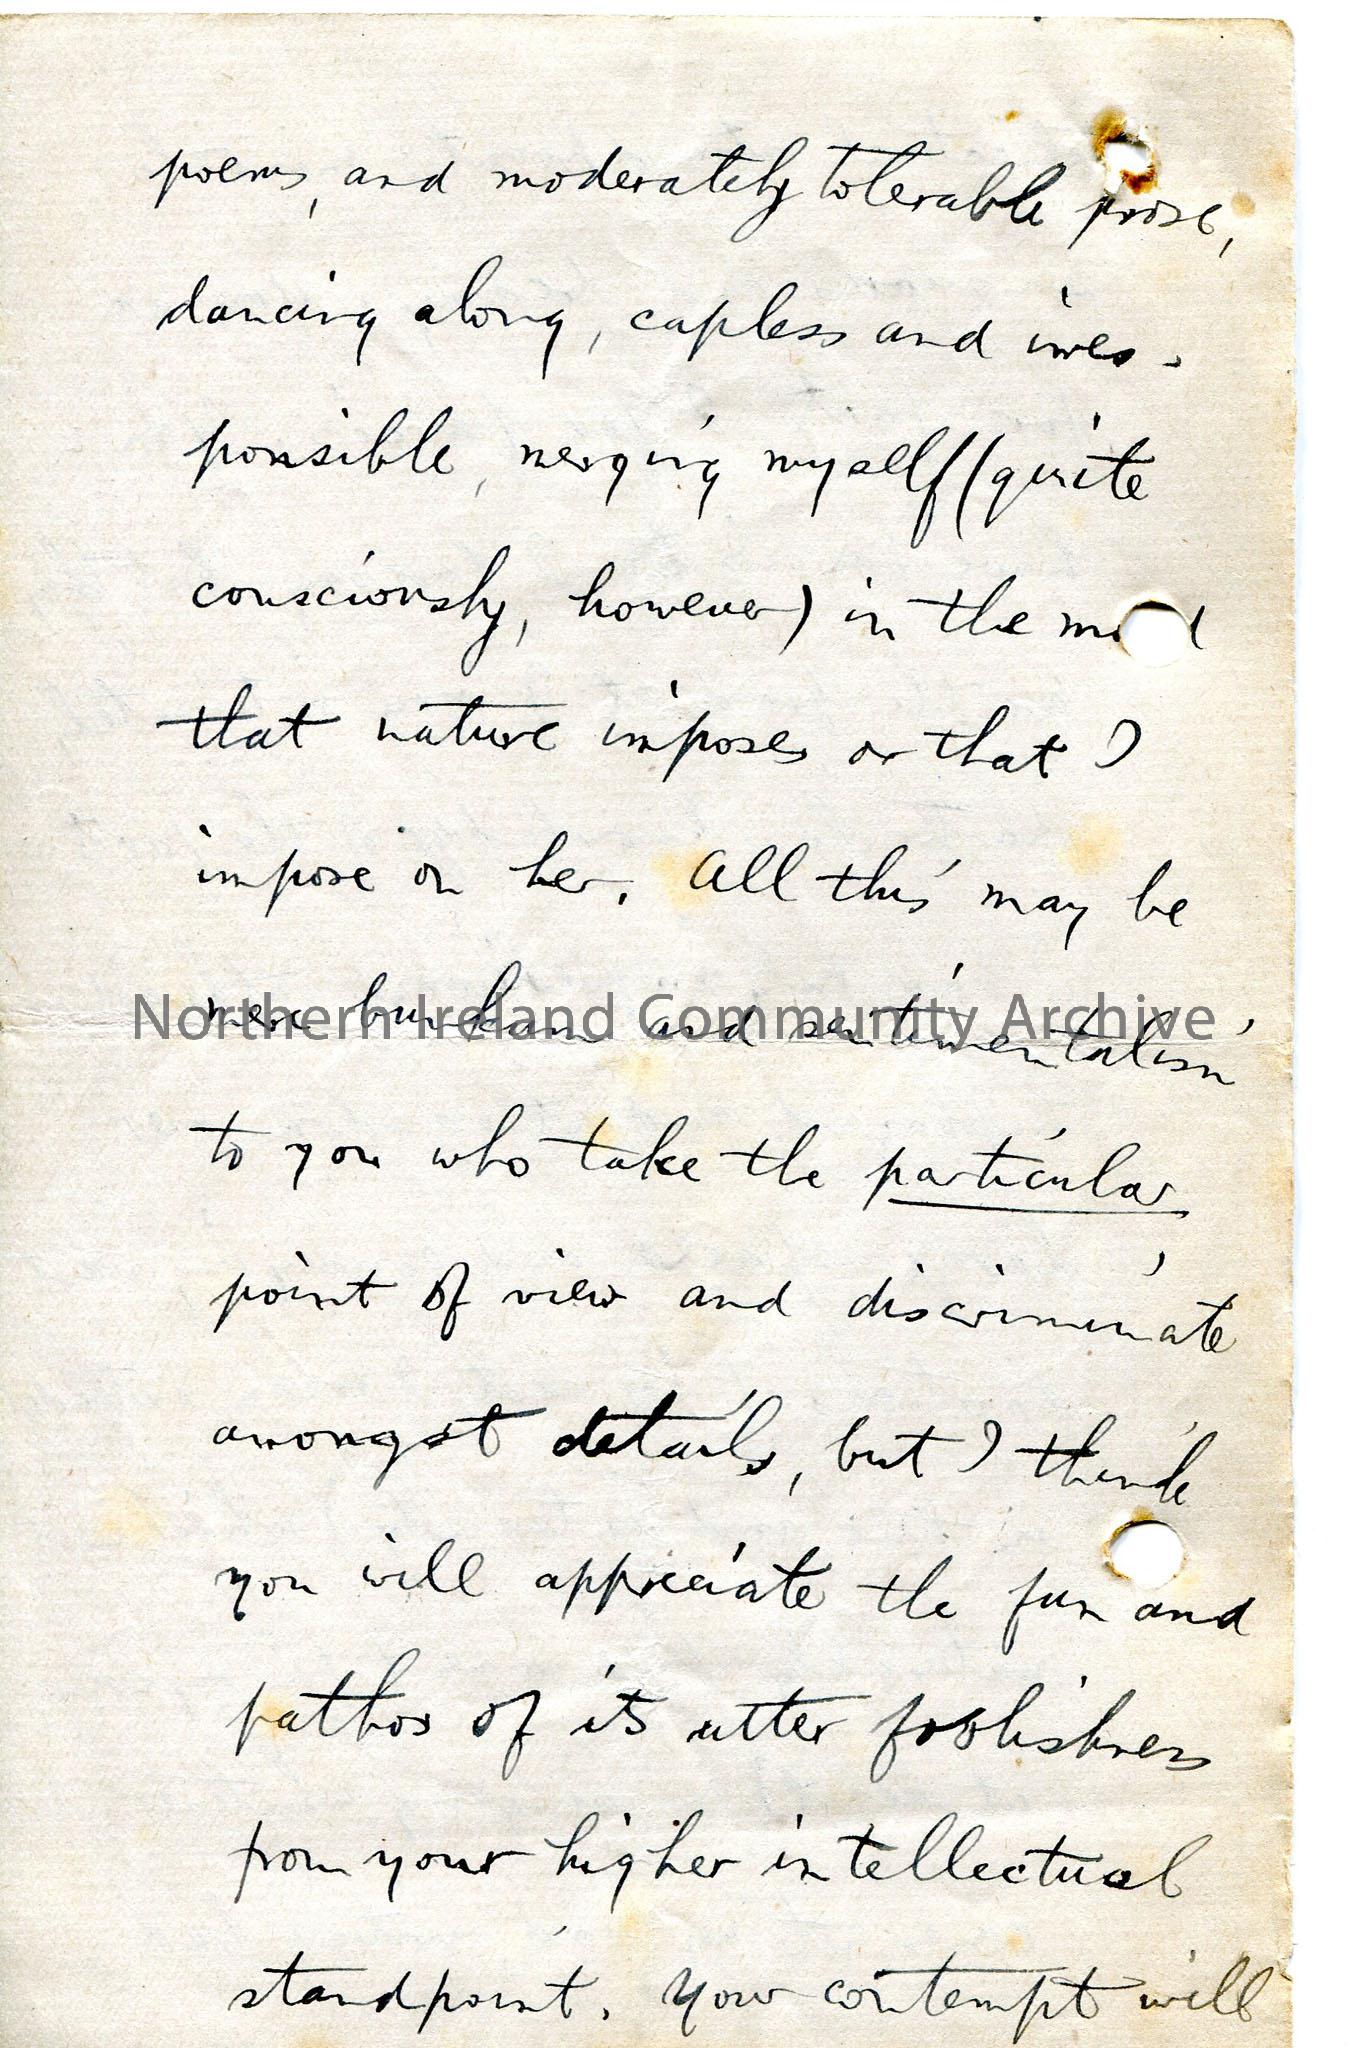 poems, and moderately tolerable prose,
dancing along, capless and irres-
ponsible, merging myself (quite
consciously, however) in the mood
that nature imposes or that I
impose on her. All this may be
mere bunkum and sentimentalism
Northern Ireland Community Archive
to you who take the particular
point of view and discriminate
amongst details, but I think
you will appreciate the fun and
pathos of its utter foolishness
from your higher intellectual
standpoint. Your contempt will